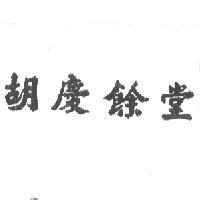 胡慶餘堂